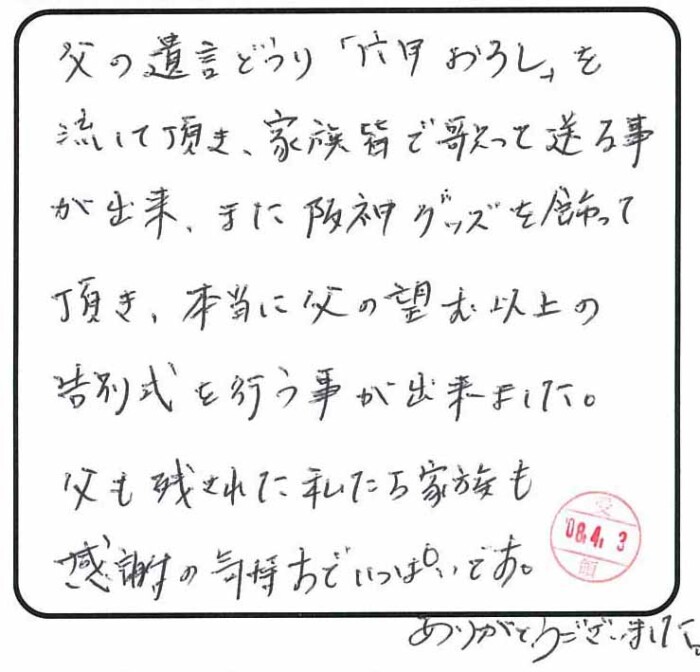 父の遺言どうり「六甲おろし」を
流して頂き、家族皆で歌って送る事
が出来、また阪神グッズを飾って
頂き、本当に父の望む以上の
告別式を行う事が出来ました。
父も残された私たち家族も
感謝の気持ちでいっぱいです。
受
'08.4.3
領
ありがとうございました。